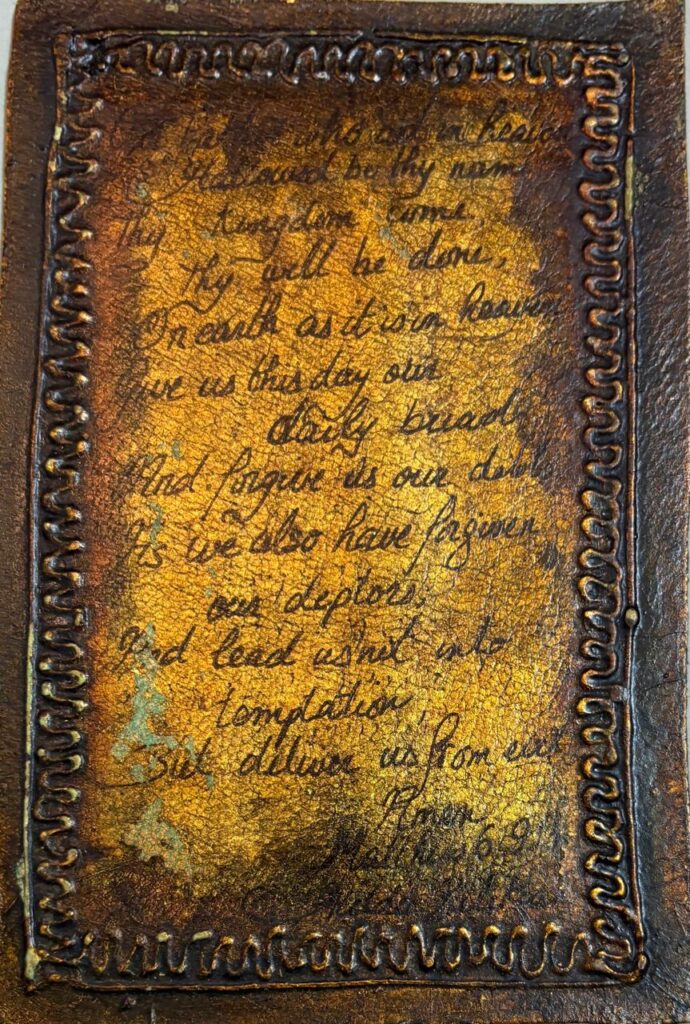 who art in heaven
Hallowed be thy name
Thy Kingdom come,
Thy will be done,
On earth as it is in heaven
Give us this day our
daily bread
And forgive us our debts
As we also have forgiven
our deptors,
And lead us not into
temptation,
But deliver us from evil
Amen
Matthew 6,9